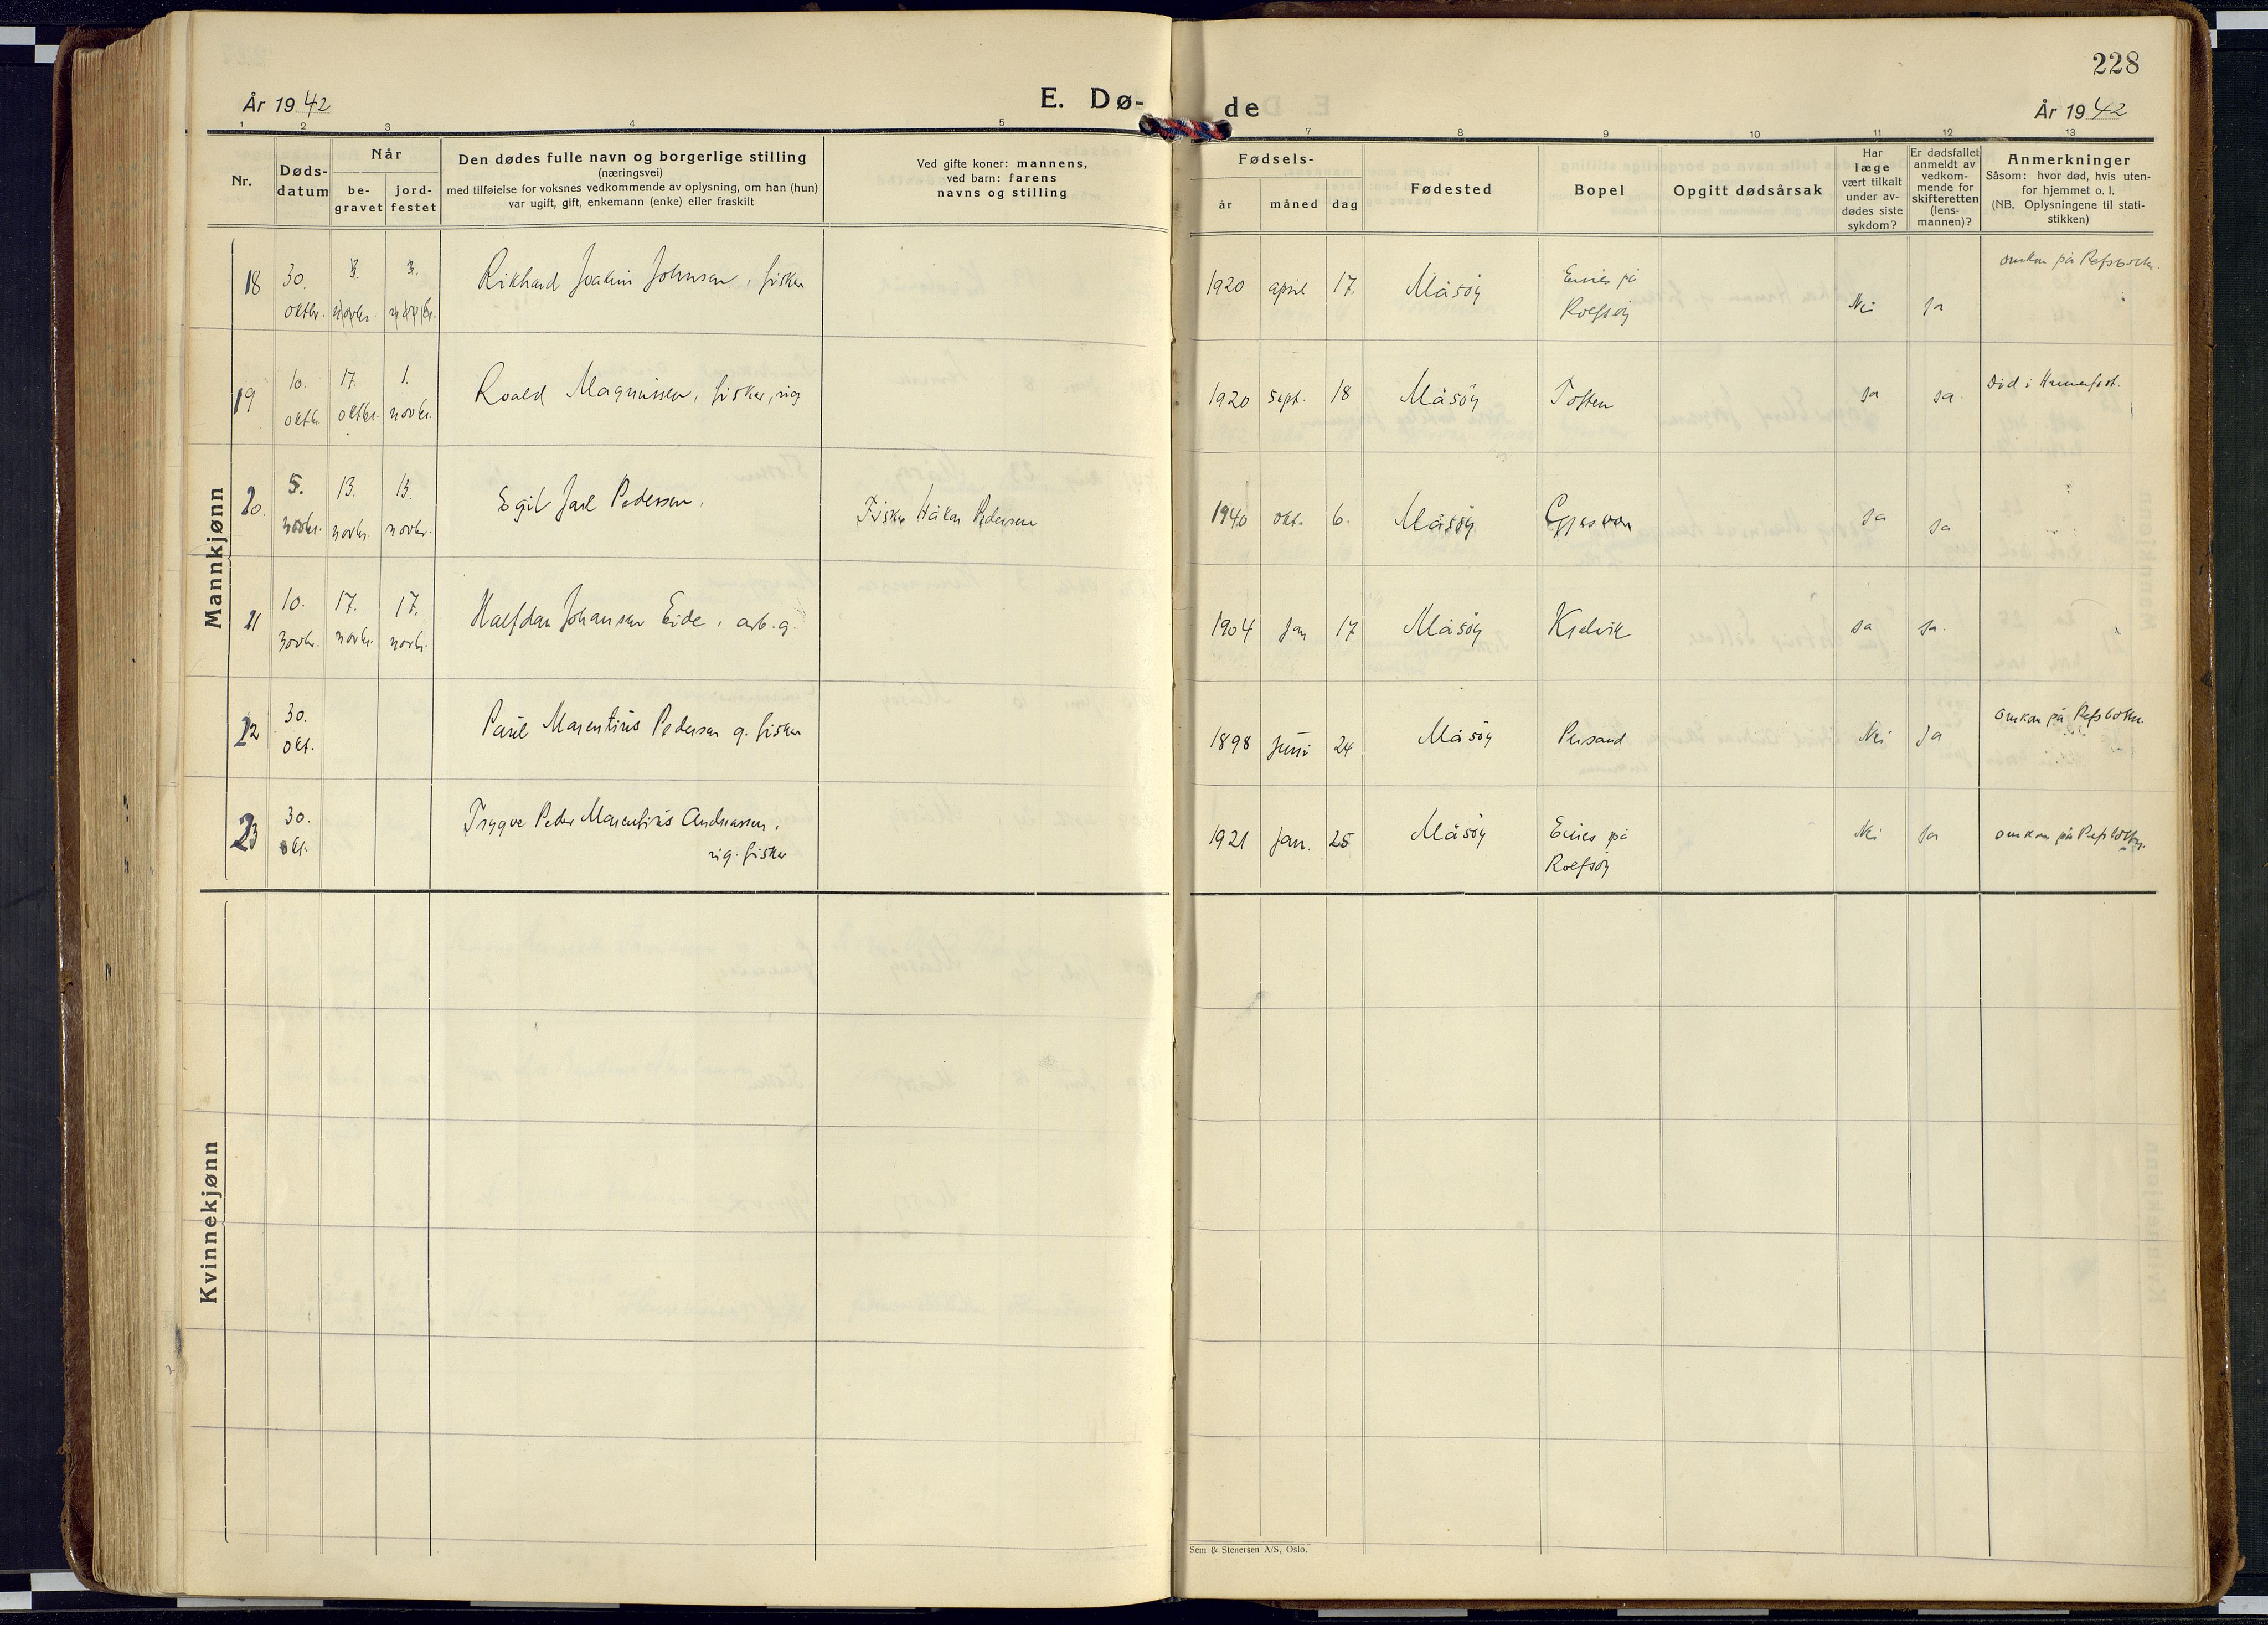 228
År 1942
E. Dø-
de
År 1942
1 2 3 4 5 7 8 9 10 11 12 13
Nr.
Døds-
datum
Når
be-
gravet
jord-
festet
Den dødes fulle navn og borgerlige stilling
(næringsvei)
med tilføielse for voksnes vedkommende av oplysning, om han (hun)
var ugift, gift, enkemann (enke) eller fraskilt
Ved gifte koner: mannens,
ved barn: farens
navns og stilling
Fødsels-
år
måned
dag
Fødested
Bopel
Opgitt dødsårsak
Har
læge
vært tilkalt
under av-
dødes siste
sykdom?
Er dødsfallet
anmeldt av
vedkom-
mende for
skifteretten
(lens-
mannen)?
Anmerkninger
Såsom: hvor død, hvis uten-
for hjemmet o. l.
(NB. Oplysningene til stati-
stikken)
Mannkjønn
18
30.
oktbr.
3.
novbr.
3.
novbr.
Rikhard Joakim Johnsen, fisker
1920 april 17.
Måsöy
Eines på
Rolfsöy
Nei
Ja
omkom på Refsbotn.
19
10.
oktbr.
17.
oktbr.
1.
novbr.
Roald Magnussen, fisker, ug
1920 sept. 18
Måsöy
Toften
Ja
Ja.
Död i Hammerfest.
20.
5.
novbr.
13.
novbr.
13.
novbr.
Egil Jarl Pedersen.
Fisker Håkon Pedersen
1940 okt. 6.
Måsöy
Gjesvær
Ja
Ja
21
10.
novbr.
17.
novbr.
17.
novbr.
Halfdan Johansen Eide, arb. g.
1904 Jan 17
Måsöy
Kjelvik
Ja
Ja.
22
30.
okt.
Paul Marentius Pedersen g. fisker
1898 Juni 24
Måsöy
Nei
Ja
omkom på Refsbotn.
23
30.
okt.
Trygve Peder Marentius Andreassen,
ug. fisker
1921 Jan. 25
Måsöy
Eines på
Rolfsöy
Nei
Ja
omkom på Refsbotn.
Kvinnekjønn
Sem & Stenersen A/S, Oslo.